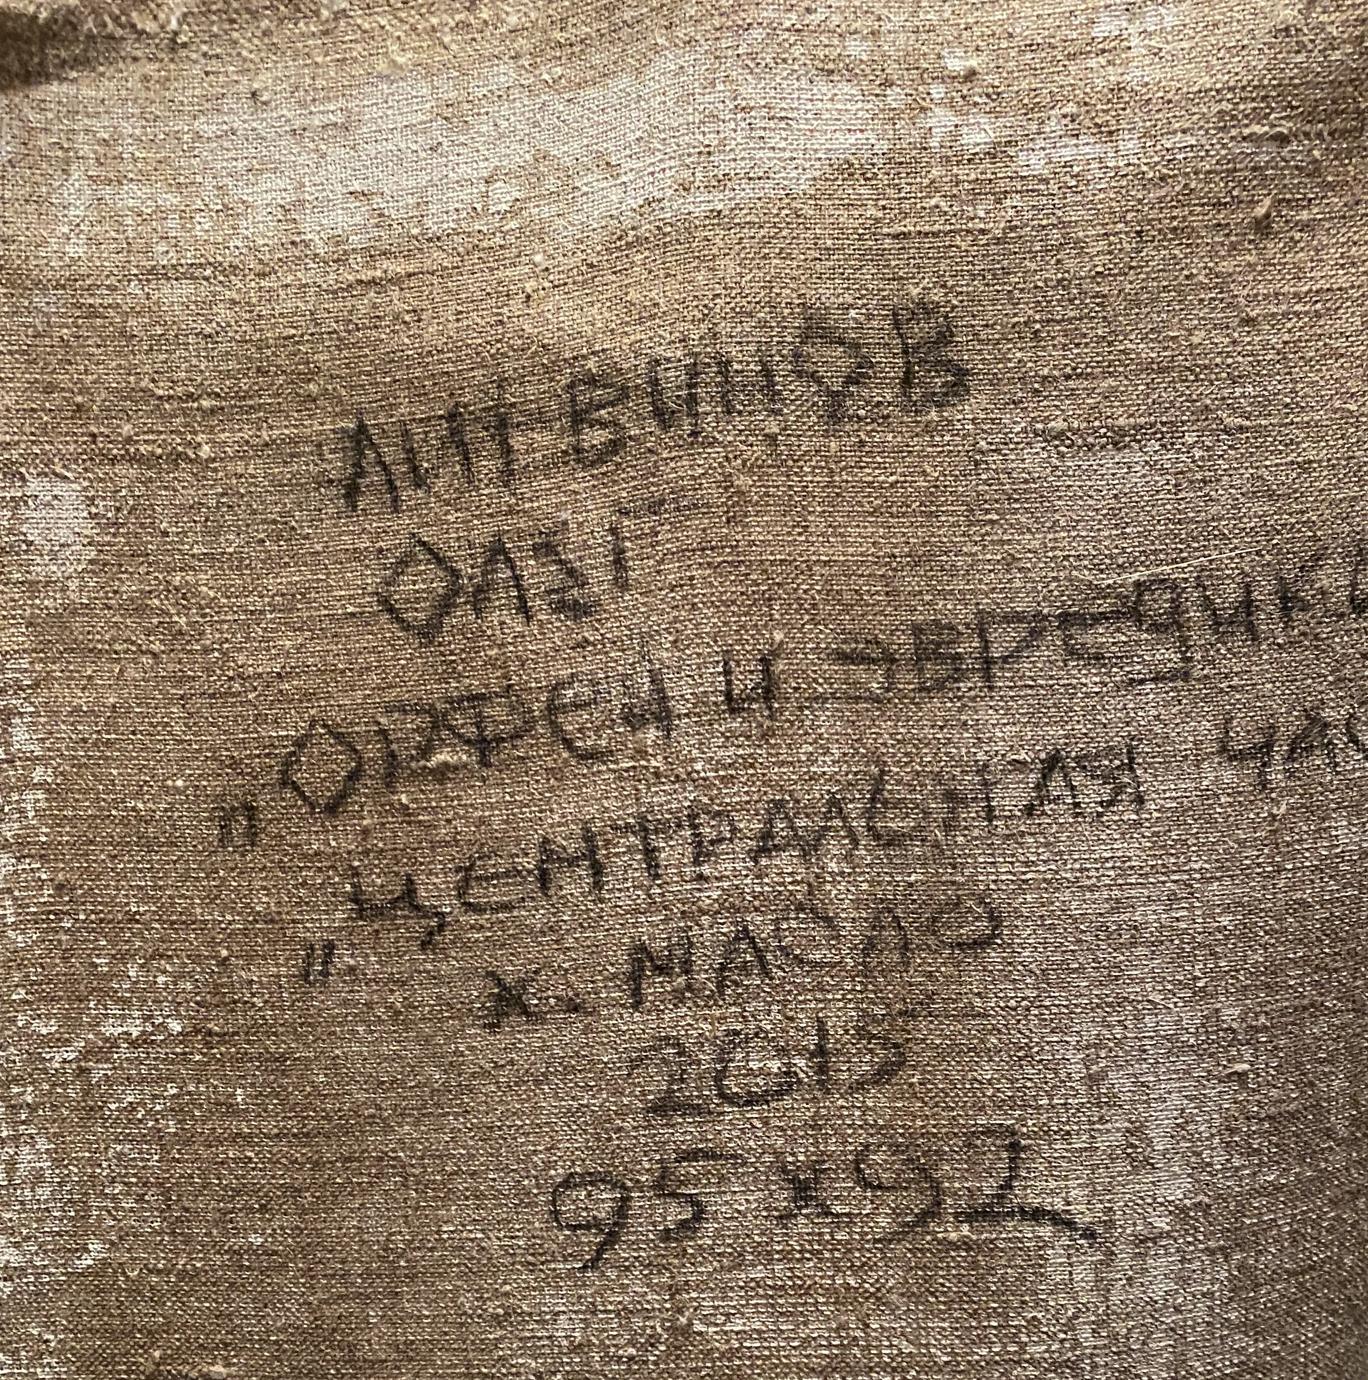 ЛИТВИНОВ
ОЛЕГ
"ОРФЕЙ И ЭВРЕДИК
"ЦЕНТРАЛЬНАЯ ЧАС
х. МАСЛО
2015
95 х 92